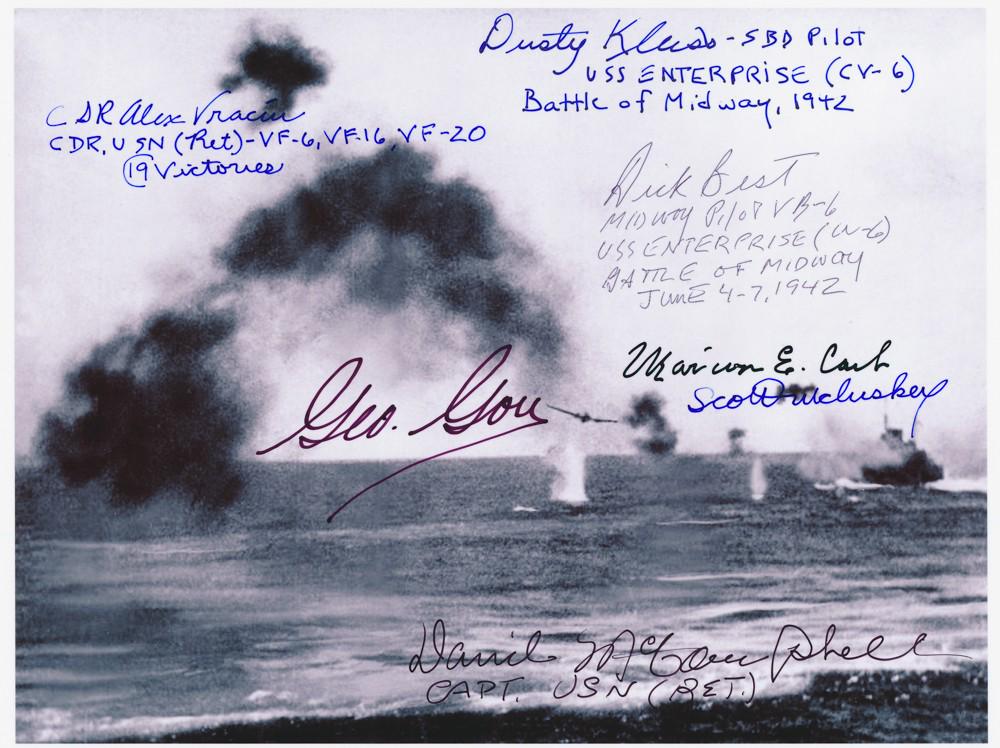 Dusty Kleiss - SBD Pilot
USS ENTERPRISE (CV-6)
Battle of Midway, 1942
CDR Alex Vraciu
CDR, USN (Ret) - VF-6, VF-16, VF-20
19 Victories
Dick Best
MIDWAY PILOT VB-6
USS ENTERPRISE (CV-6)
BATTLE OF MIDWAY
JUNE 4-7, 1942
Marion E. Carl
Scott McCuskey
Geo. Gay
David McCampbell
CAPT. USN (RET.)